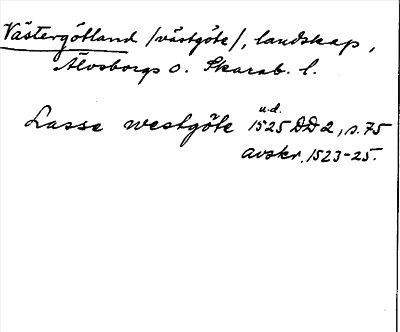 Västergötland /västgöte/, landskap,
Älvsborgs o. Skarab. l.
u.d.
Lasse westgöte 1525 DD 2, s. 75
avskr. 1523-25.